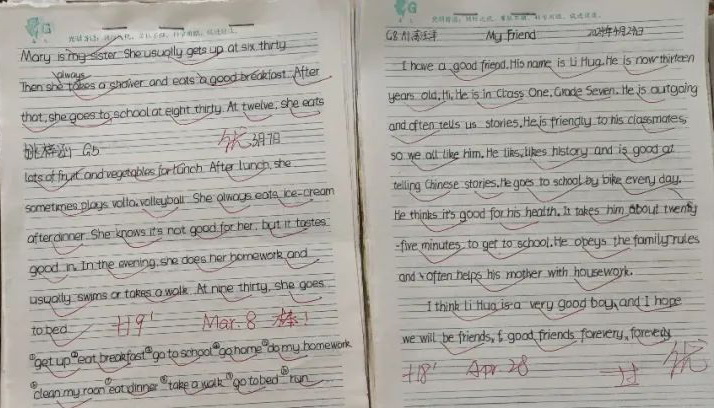 Mary is my sister. She usually gets up at six thirty.
always
Then she takes a shower and eats a good breakfast. After
that, she goes to school at eight thirty. At twelve, she eats
3月7日
lots of fruit and vegetables for lunch. After lunch, she
sometimes plays volla, volleyball. She always eats ice-cream
after dinner. She knows it's not good for her, but it tastes
good in. In the evening, she does her homework and
usually swims or takes a walk. At nine thirty, she goes
to bed. Mar. 8 棒!
①get up ②eat breakfast ③go to school ④go home ⑤do my homework
⑥clean my room ⑦eat dinner ⑧take a walk ⑨go to bed ⑩run
My friend
I have a good friend. His name is Li Hua. He is now thirteen
years old, Hi, He is in Class One, Grade Seven. He is outgoing
and often tells us stories. He is friendly to his classmates,
so we all like him. He liks, likes history and is good at
telling Chinese stories. He goes to school by bike every day.
He thinks it's good for his health. It takes him about twenty
-five minutes to get to school. He obeys the family rules
and often helps his mother with housework.
I think Li Hua is a very good boy, and I hope
we will be friends, good friends forevery, forevery
Apr 28